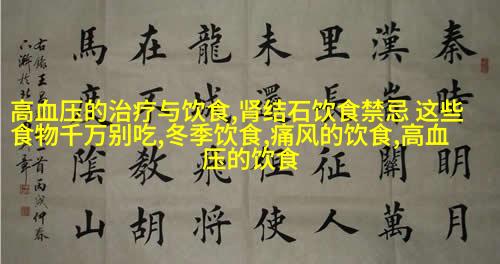 高血压的治疗与饮食,肾结石饮食禁忌 这些
食物千万别吃,冬季饮食,痛风的饮食,高血
压的饮食
秦時明月
漢時關萬
里長征人
未還使
龍城飛將
在不教胡
馬度陰山
右録王
首丙戌仲春